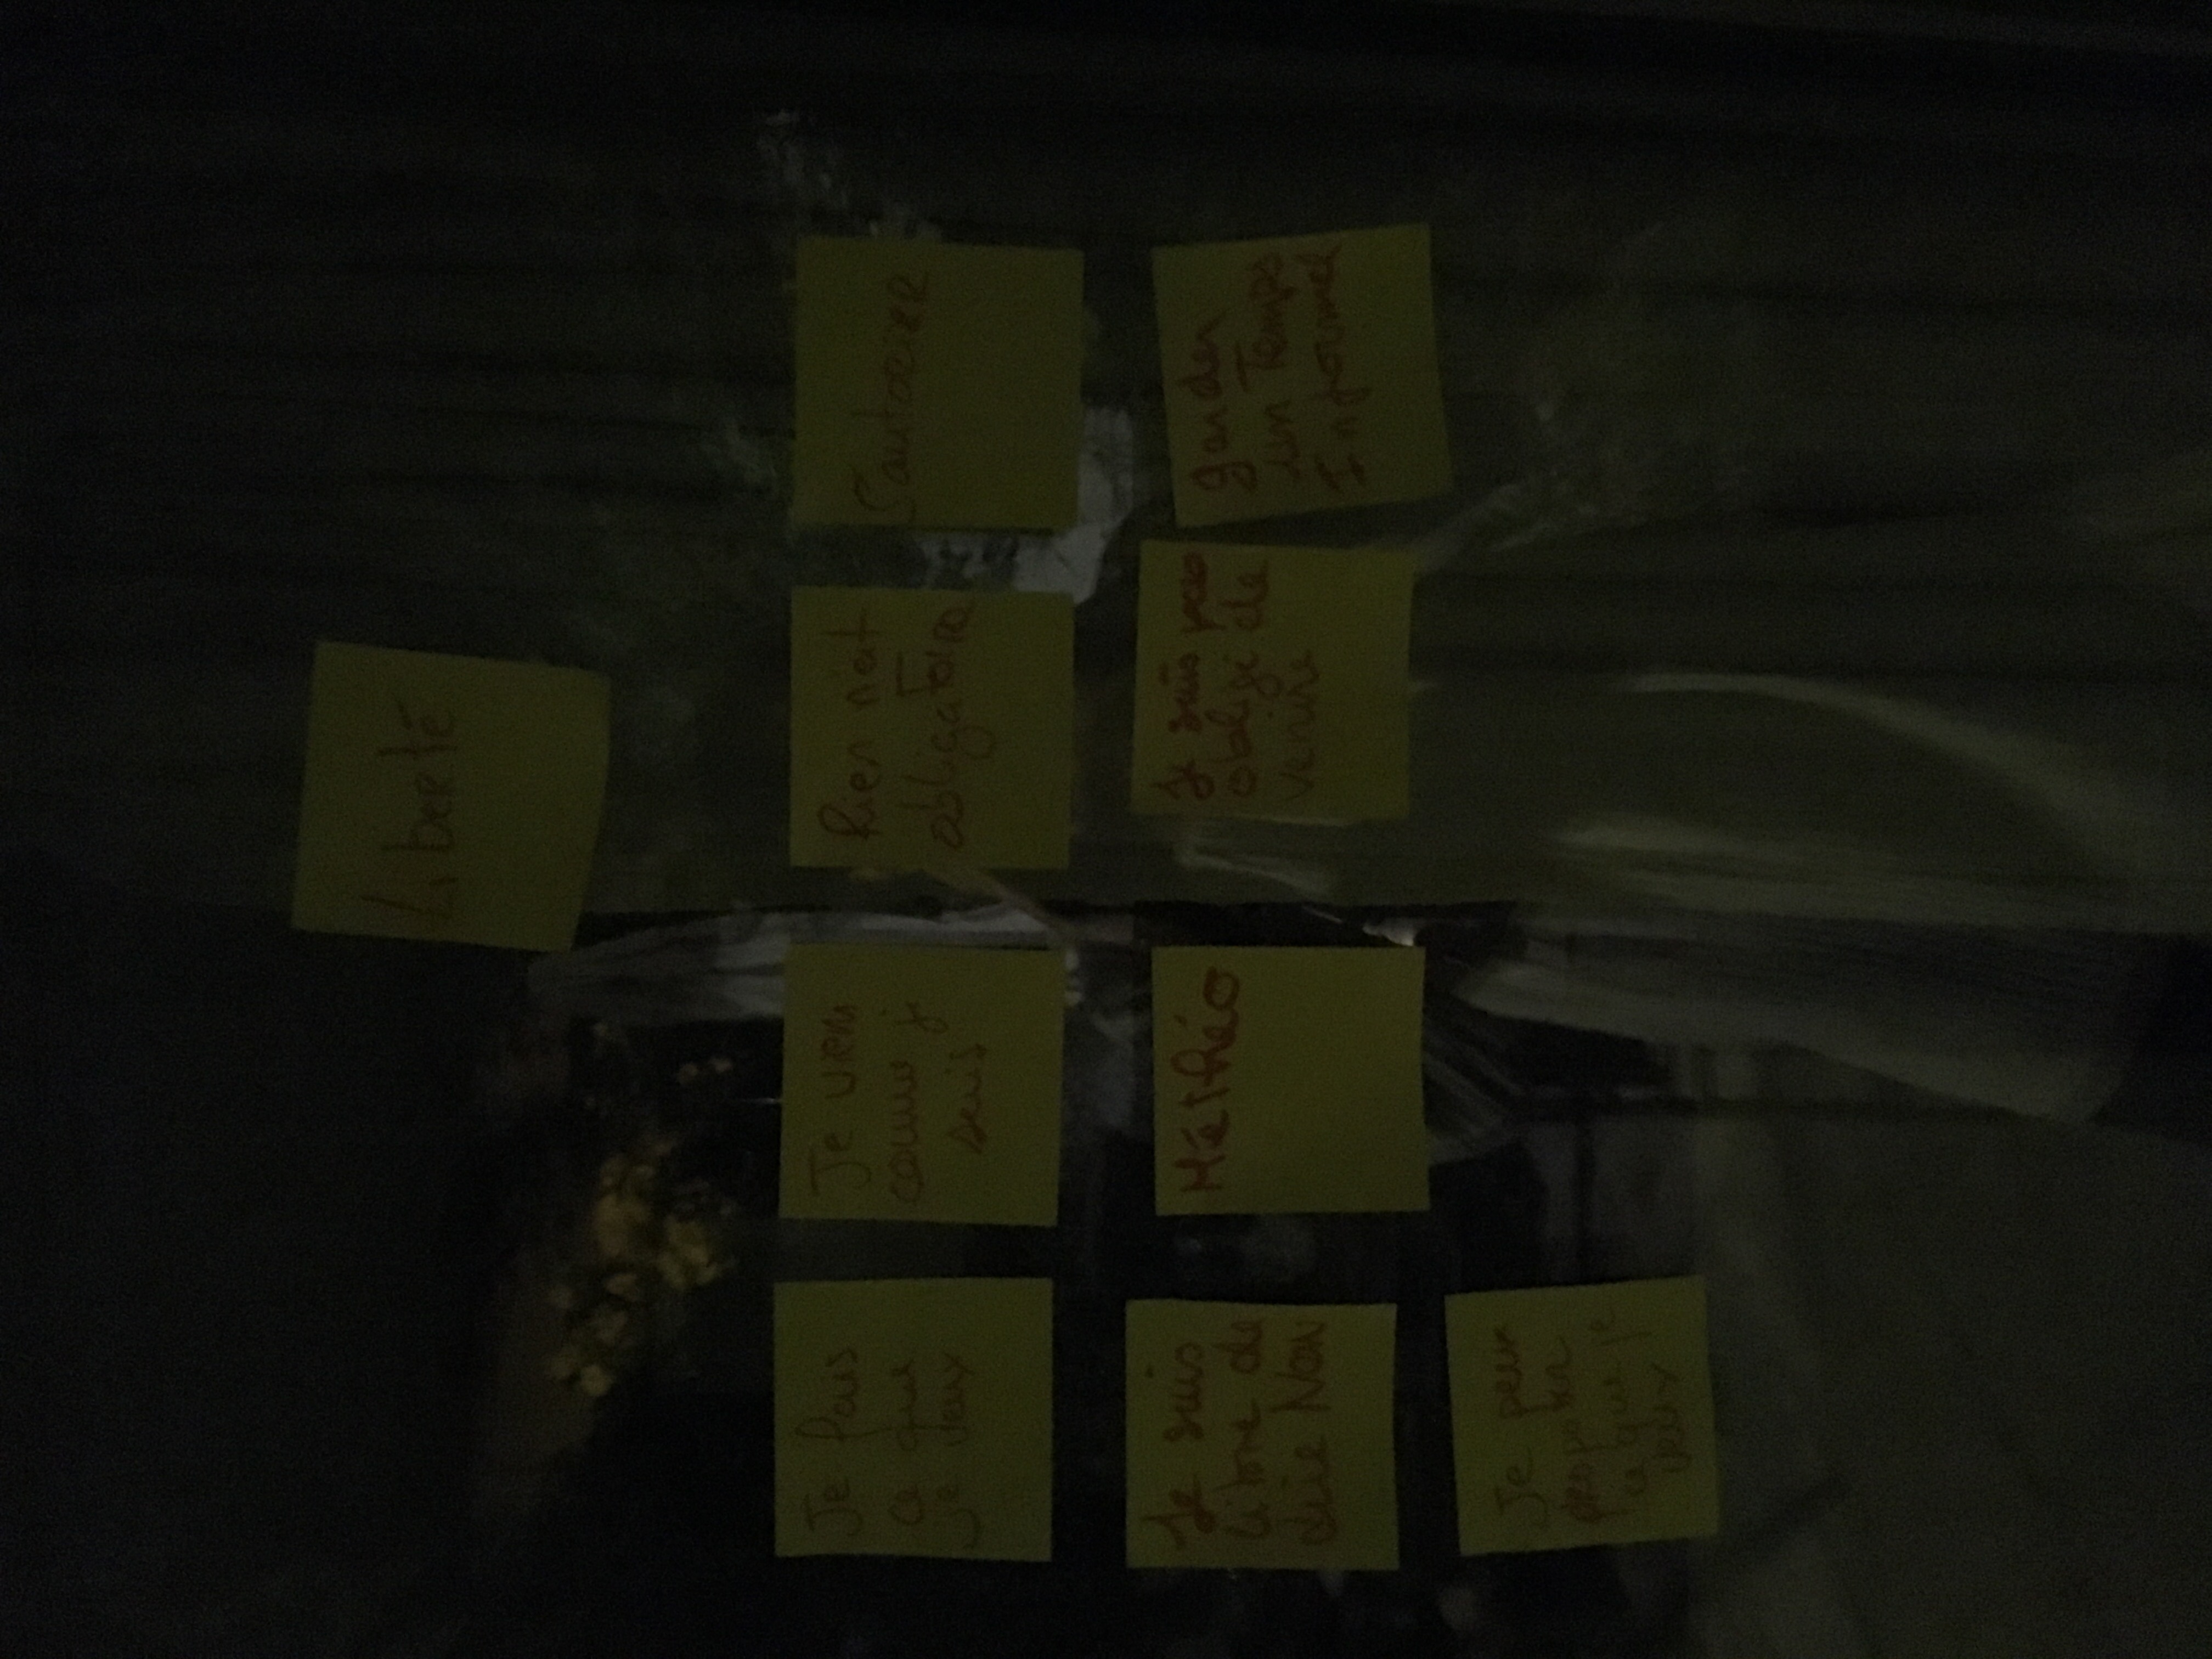 Liberté
Je fais
ce que
je veux
Je viens
comme je
suis
Rien n'est
obligatoire
S'autoriser
Je suis
libre de
dire Non
Méthéo
Je suis pas
obligé de
venire
garder
un Temps
Informel
Je peux
proposer
ce que je
veux